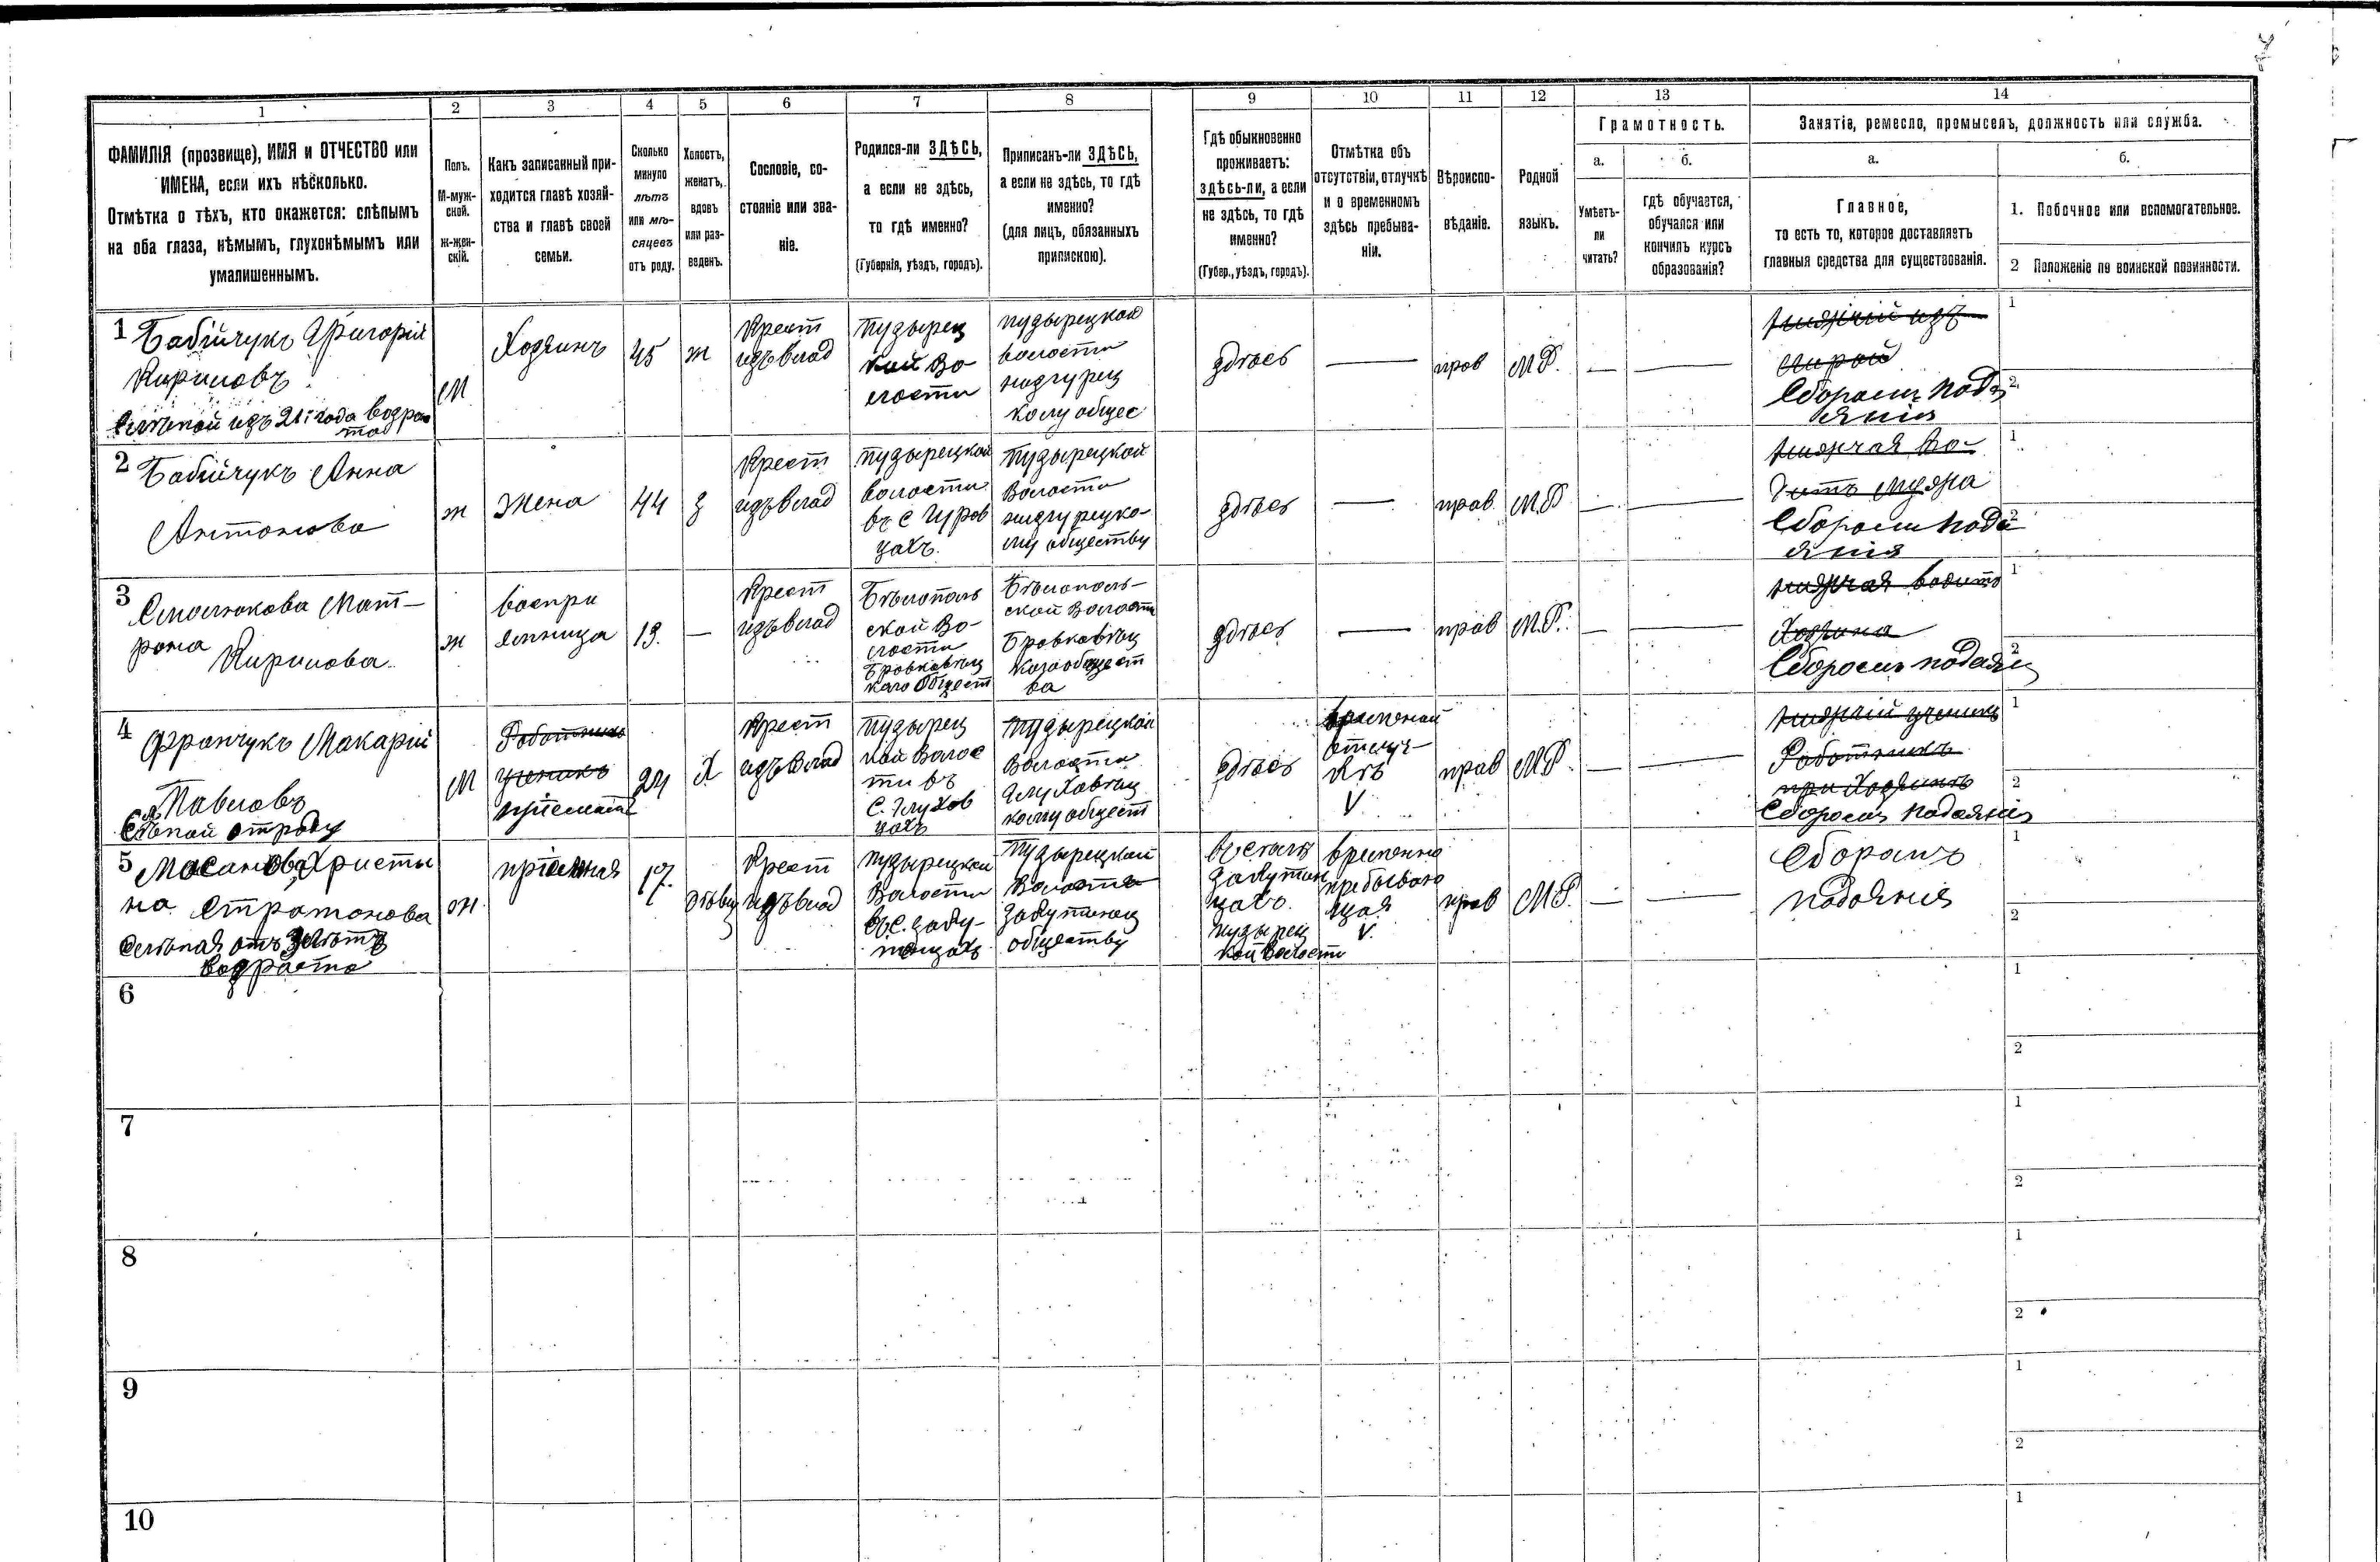 1
2
3
4
5
6
7
8
9
10
11
12
13
14
ФАМИЛІЯ (прозвище), ИМЯ и ОТЧЕСТВО или
ИМЕНА, если ихъ нѣсколько.
Отмѣтка о тѣхъ, кто окажется: слѣпымъ
на оба глаза, нѣмымъ, глухонѣмымъ или
умалишеннымъ.
Полъ.
М-муж-
ской.
ж-жен-
скій.
Какъ записанный при-
ходится главѣ хозяй-
ства и главѣ своей
семьи.
Сколько
минуло
лѣтъ
или мѣ-
сяцевъ
отъ роду.
Холостъ,
женатъ,
вдовъ
или раз-
веденъ.
Сословіе, со-
стояніе или зва-
ніе.
Родился-ли ЗДѢСЬ,
а если не здѣсь,
то гдѣ именно?
(Губернія, уѣздъ, городъ).
Приписанъ-ли ЗДѢСЬ,
а если не здѣсь, то гдѣ
именно?
(для лицъ, обязанныхъ
припискою).
Гдѣ обыкновенно
проживаетъ:
здѣсь-ли, а если
не здѣсь, то гдѣ
именно?
(Губер., уѣздъ, городъ).
Отмѣтка объ
отсутствіи, отлучкѣ
и о временномъ
здѣсь пребыва-
ніи.
Вѣроиспо-
вѣданіе.
Родной
языкъ.
Грамотность.
а.
б.
Умѣетъ-
ли
читать?
гдѣ обучается,
обучался или
кончилъ курсъ
образованія?
Занятіе, ремесло, промыселъ, должность или служба.
а.
б.
Главное,
то есть то, которое доставляетъ
главныя средства для существованія.
1. Побочное или вспомогательное.
2 Положеніе по воинской повинности.
1 Бабійчукъ Григорій
Кириловъ
Слѣпой изъ 21 года возрас
та
М
Хозяинъ
45
ж
Крест
изъ влад
Пудырец
кой Во
лости
пудырецкой
волости
кому общес
здѣсь
—
прав
М.Р.
—
—
Сбороти Пода
янія
1
2
2 Бабійчукъ Анна
Антонова
ж
Жена
44
з
Крест
изъ влад
Пудырецкой
волости
въ с
цахъ.
Пудырецкой
Волости
му обществу
здѣсь
—
прав
М.Р
—
—
Сбороти пода
янія
1
2
3 Смолюкова Мат-
рона
Кирилова
ж
воспри
ятница
13.
—
Крест
изъ влад
Бѣлополь
ской Во-
лости
Бровковѣц
каго Общест
Бѣлополь-
ской Волости
Бровковѣц
каго общест
ва
здѣсь
—
прав
М.Р.
—
—
Сбороти подаян
1
2
4 Франчукъ Макарій
Павловъ
Слѣпой отроду
М
Работникъ
ученикъ
24
Х
Крест
изъ влад
Пудырец
кой Волос
ти въ
с. Глухов
цахъ
Пудырецкой
Волости
Глуховец
кому общест
здѣсь
временой
отлуч-
кѣ
V
прав
М.Р.
—
—
Работникъ
при Хозяинѣ
Сбороти подаянія
1
2
5 Масанова Христи
на Стратонова
Слѣпая отъ 3 лѣтъ
возраста
ж
17.
дѣвиц
Крест
изъ влад
пудырецкой
Волости
въ с.
Пудырецкой
Волости
обществу
въ селѣ
цахъ.
пудырец
кой Волости
временно
пребываю
щая
V.
прав
М.Р.
—
—
Сборомъ
подаянія
1
2
6
1
2
7
1
2
8
1
2
9
1
2
10
1